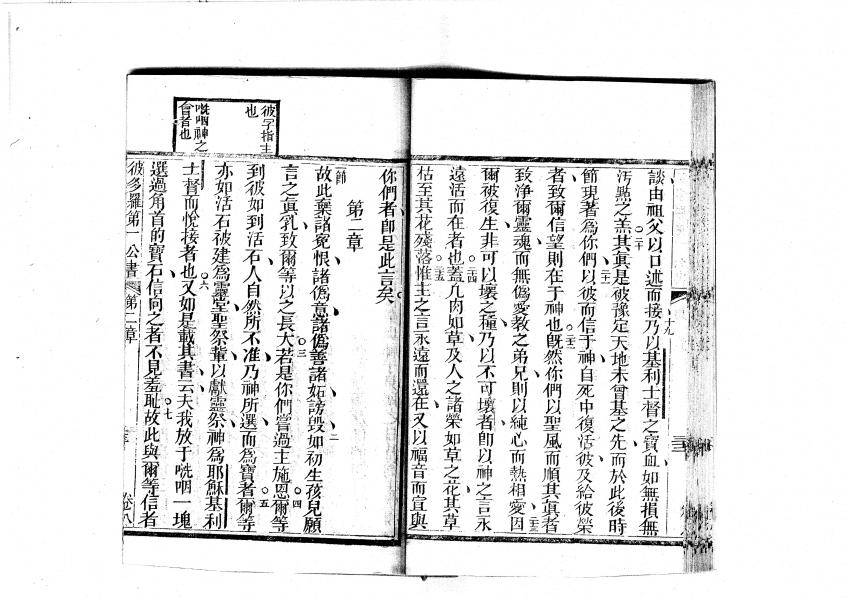 談由祖父以口述而接乃以基利士督之寶血如無損無
汚點之羔其眞是被豫定天地未曾基之先而於此後時
節現著爲你們以彼而信于神自死中復活彼及給彼榮
者致爾信望則在于神也旣然你們以聖風而順其眞者
致淨爾靈魂而無僞愛教之弟兄則以純心而熱相愛因
爾被復生非可以壞之種乃以不可壞者卽以神之言永
遠活而在者也蓋凡肉如草及人之諸榮如草之花其草
枯至其花殘落惟主之言永遠而還在又以福音而宣與
你們者卽是此言矣
第二章
故此棄諸寃恨諸僞意諸僞善諸妬謗毀如初生孩兒願
言之眞乳致爾等以之長大若是你們嘗過主施恩爾等
到彼如到活石人自然所不准乃神所選而爲寶者爾等
亦如活石被建爲靈堂聖祭輩以獻靈祭神爲耶穌基利
士督而悅接者也又如是載其書云夫我放于咣咽一塊
選過角首的寶石信向之者不見羞恥故此與爾等信者
彼多羅第一公書 第二章 卷八
彼字指主
也
咣咽神之
會者也